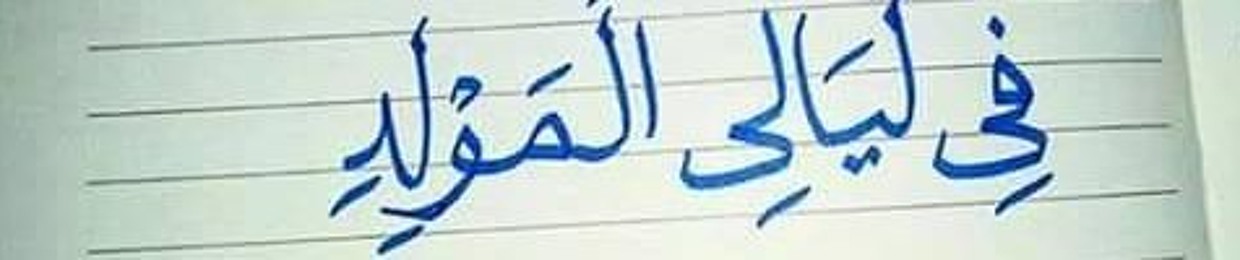 فِى لَيَالِى الْمَوْلِدِ